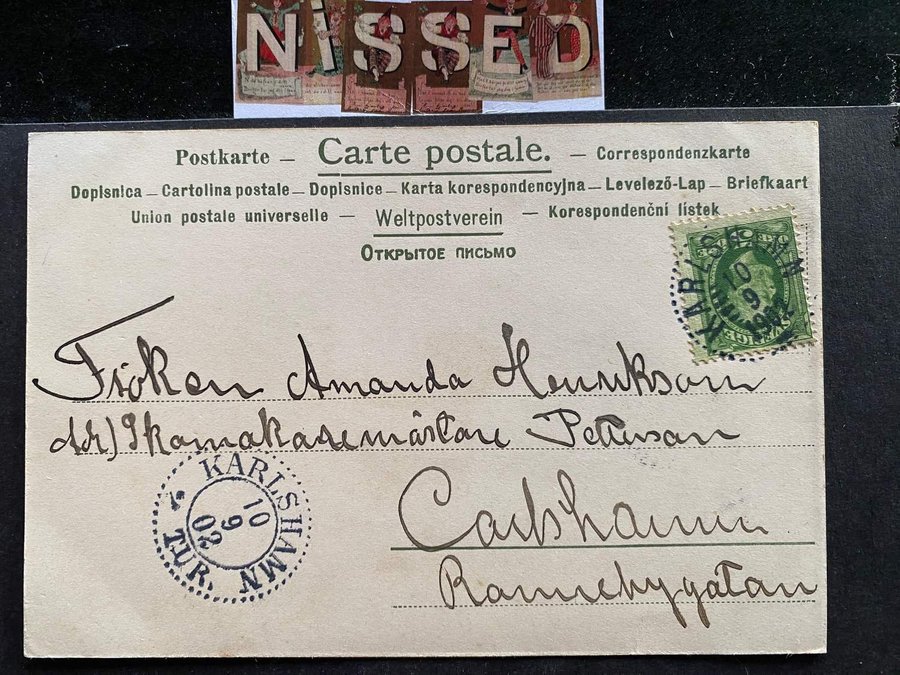 NiSSED
Postkarte — Carte postale. — Correspondenzkarte
Dopisnica — Cartolina postale — Dopisnice — Karta korespondencyjna — Levelező-Lap — Briefkaart
Union postale universelle — Weltpostverein — Korespondenční lístek
Открытое письмо
KARLSHAMN
10
9
1902
SVERIGE
Fröken Amanda Henrikson
Skomakaremästare Petterson
KARLSHAMN
10
9
02
TUR.
Carlshamn
Ronnebygatan